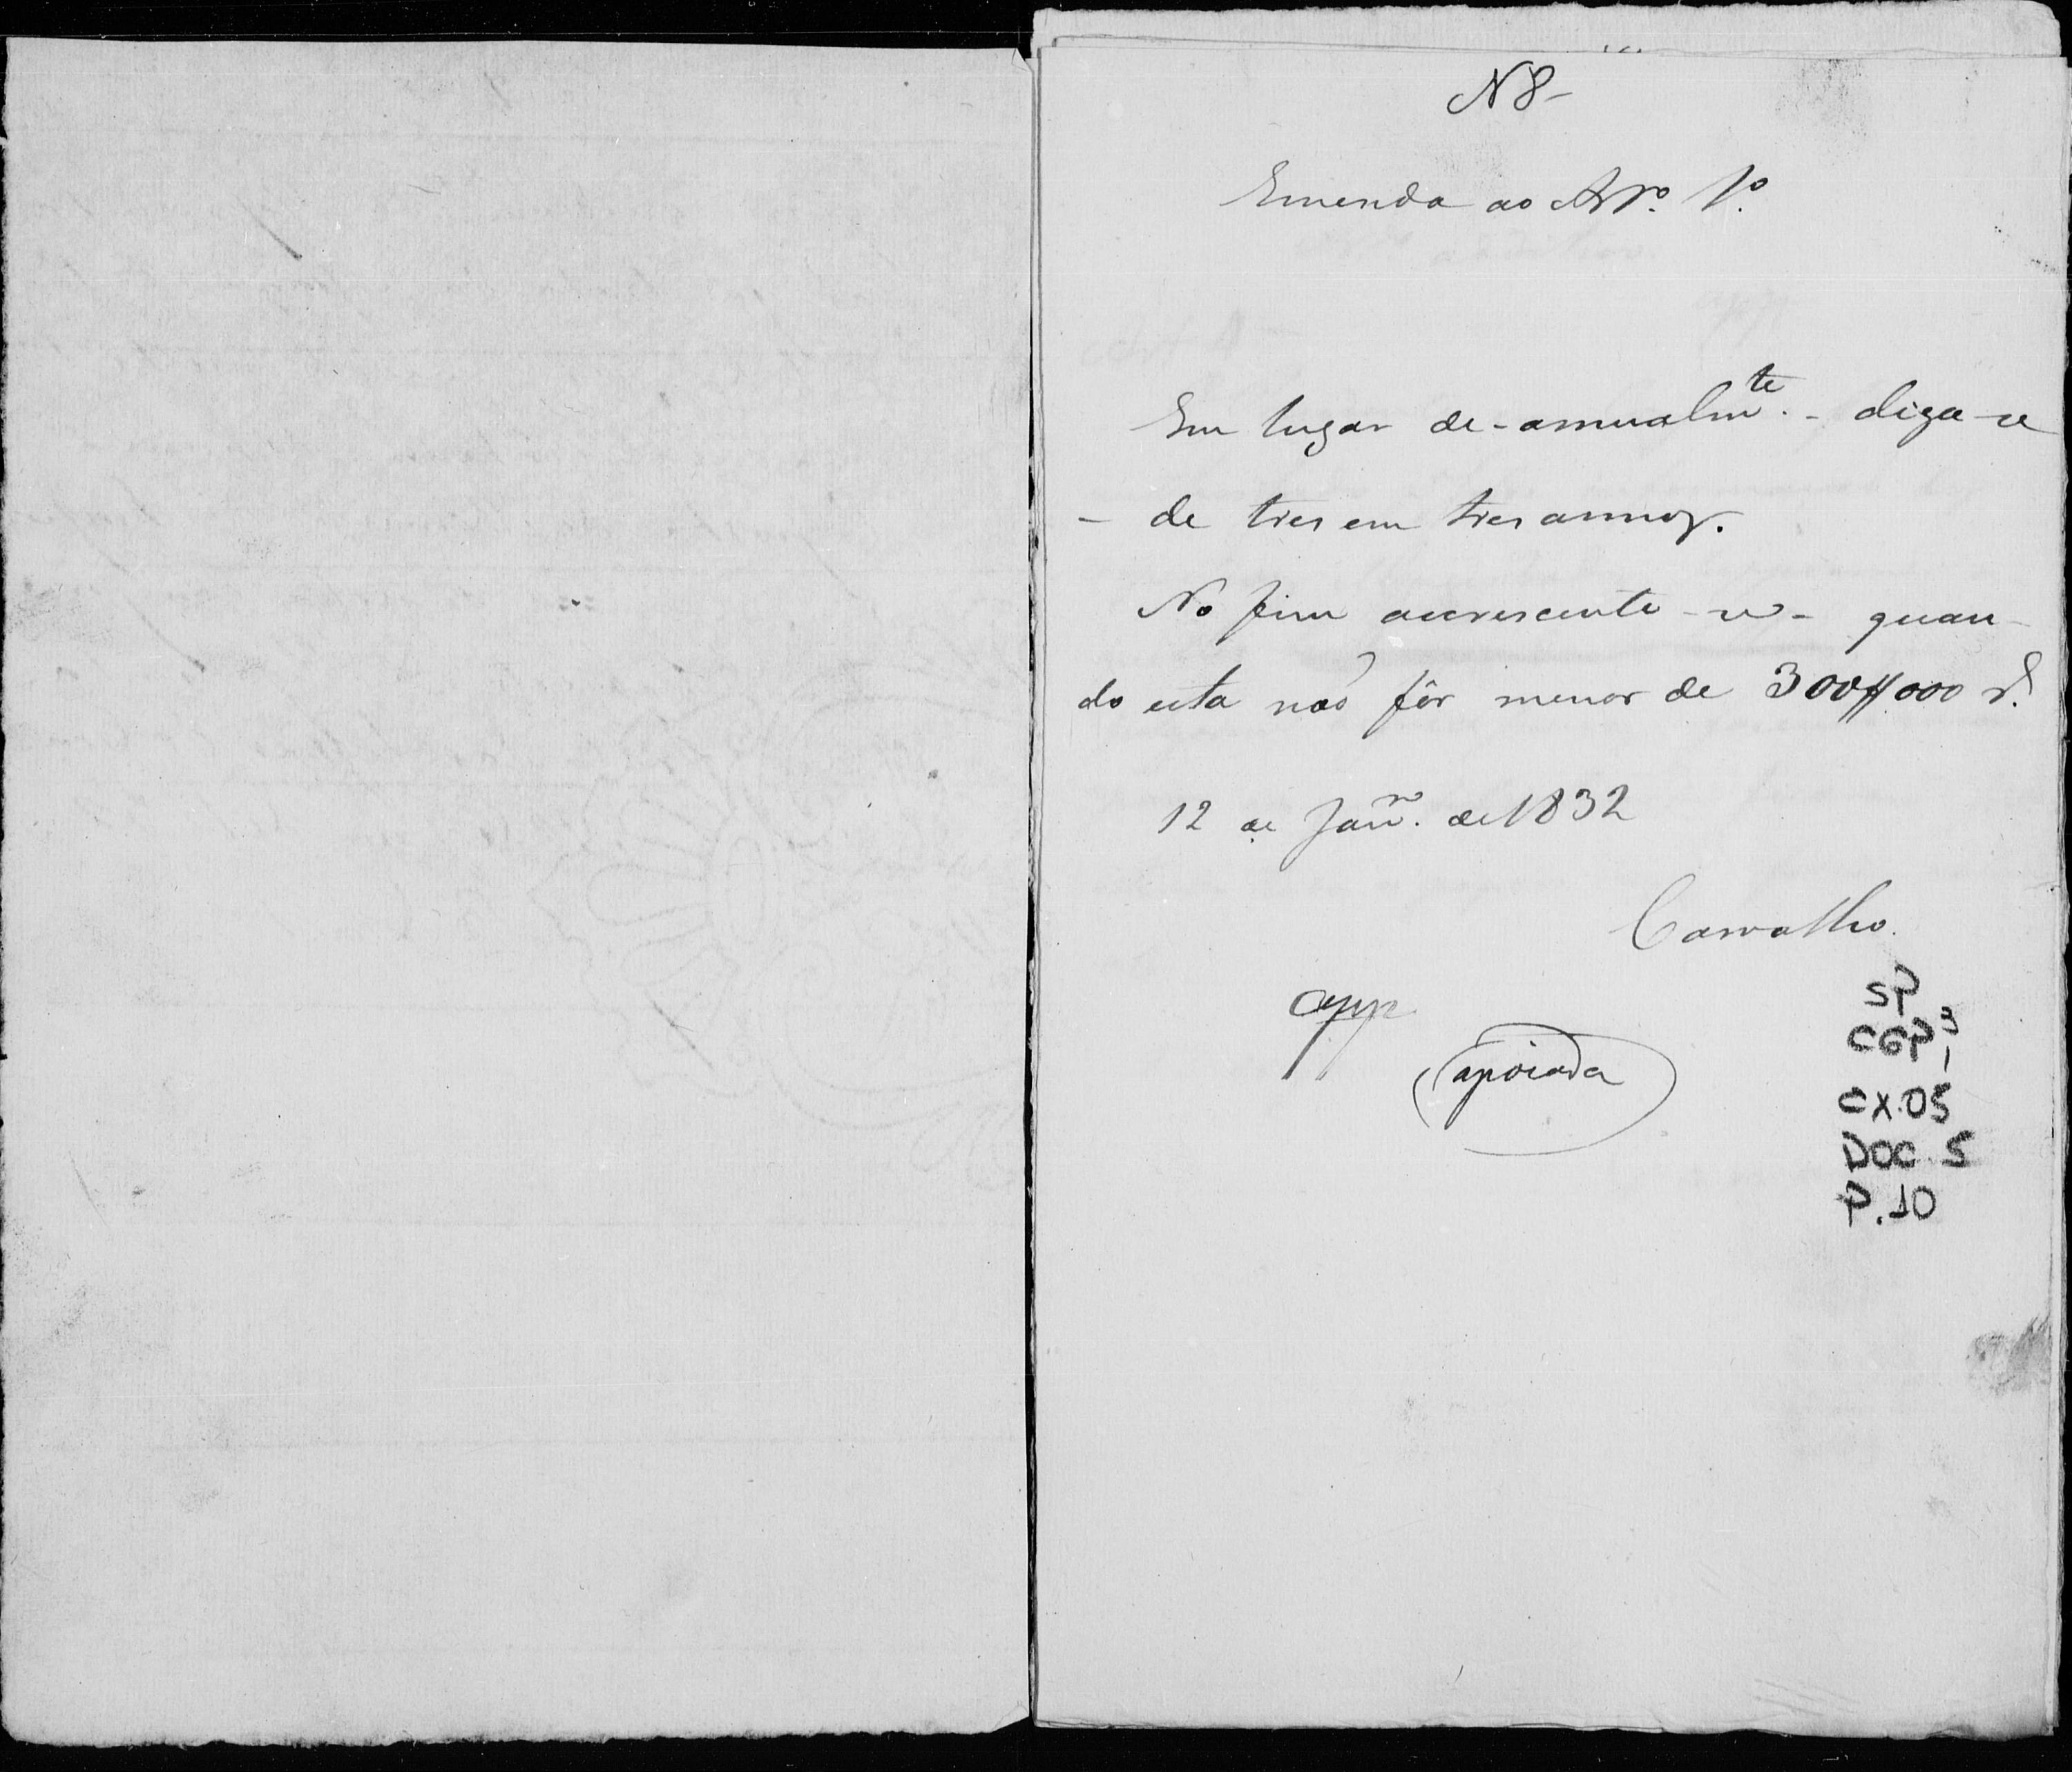 N 8-
Emenda ao Arº. 1º.
Em lugar de - annualmte. - diga-se
- de tres em tres annos.
No fim accrescente-se - quan-
do esta não fôr menor de 300$000 rs.
12 de Janro. de 1832
Carvalho.
app
apoiada
SP
CGP3
1
CX.05
DOC. 5
P.10